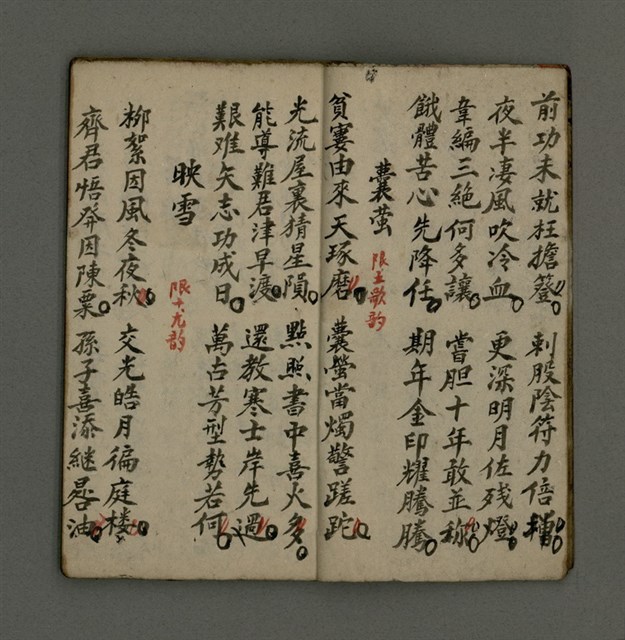 前功未就枉擔簦 刺股陰符力倍增
夜半凄風吹冷血 更深明月佐残燈
韋編三絕何多讓 嘗胆十年敢並称
餓體苦心先降任 期年金印耀騰騰
囊萤 限五歌韵
貧寠由來天琢磨 囊螢當燭警蹉跎
光流屋裏猜星隕 點照書中喜火多
能導難君津早渡 還教寒士岸先過
艱难矢志功成日 萬古芳型勢若何
映雪 限十一尤韵
柳絮因風冬夜秋 交光皓月徧庭楼
齊君悟發因陳粟 孫子喜添継晷油